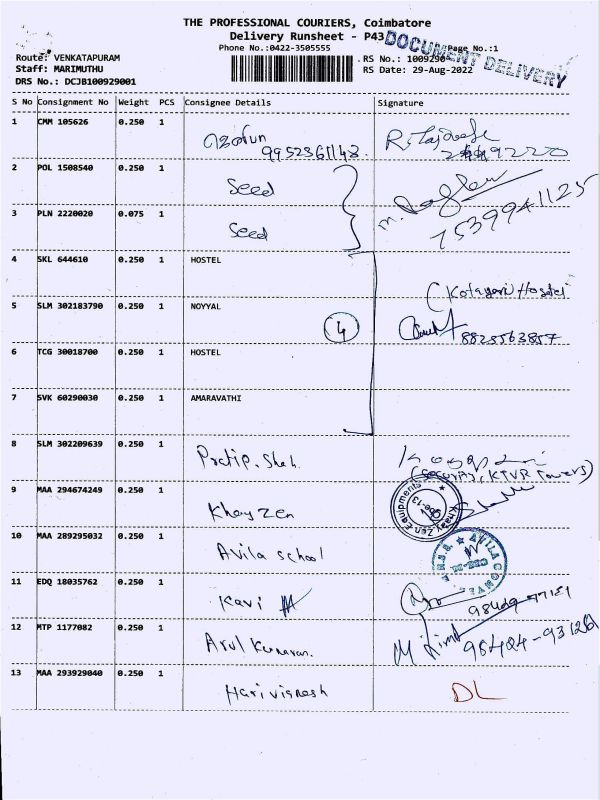 THE PROFESSIONAL COURIERS, Coimbatore
Delivery Runsheet - P43
DOCUMENT DELIVERY
Phone No.:0422-3505555 Page No.:1
Route: VENKATAPURAM RS No.: 1009290
Staff: MARIMUTHU RS Date: 29-Aug-2022
DRS No.: DCJB100929001
S No Consignment No Weight PCS Consignee Details Signature
1 CMM 105626 0.250 1
9952361148
2 POL 1508540 0.250 1 Seed
3 PLN 2220020 0.075 1 Seed 7539941125
4 SKL 644610 0.250 1 HOSTEL
(Kotagari Hostel
5 SLM 302183790 0.250 1 NOYYAL
4
8825563857
6 TCG 30018700 0.250 1 HOSTEL
7 SVK 60290030 0.250 1 AMARAVATHI
8 SLM 302209639 0.250 1 Pratip. Shah.
(Security, KTVR Towers)
9 MAA 294674249 0.250 1 Khay Zen
Khaay Zen Equipments
10 MAA 289295032 0.250 1 Avila School
11 EDQ 18035762 0.250 1 Kavi
12 MTP 1177082 0.250 1 Arul Kumaran.
13 MAA 293929040 0.250 1 Harivignesh DL